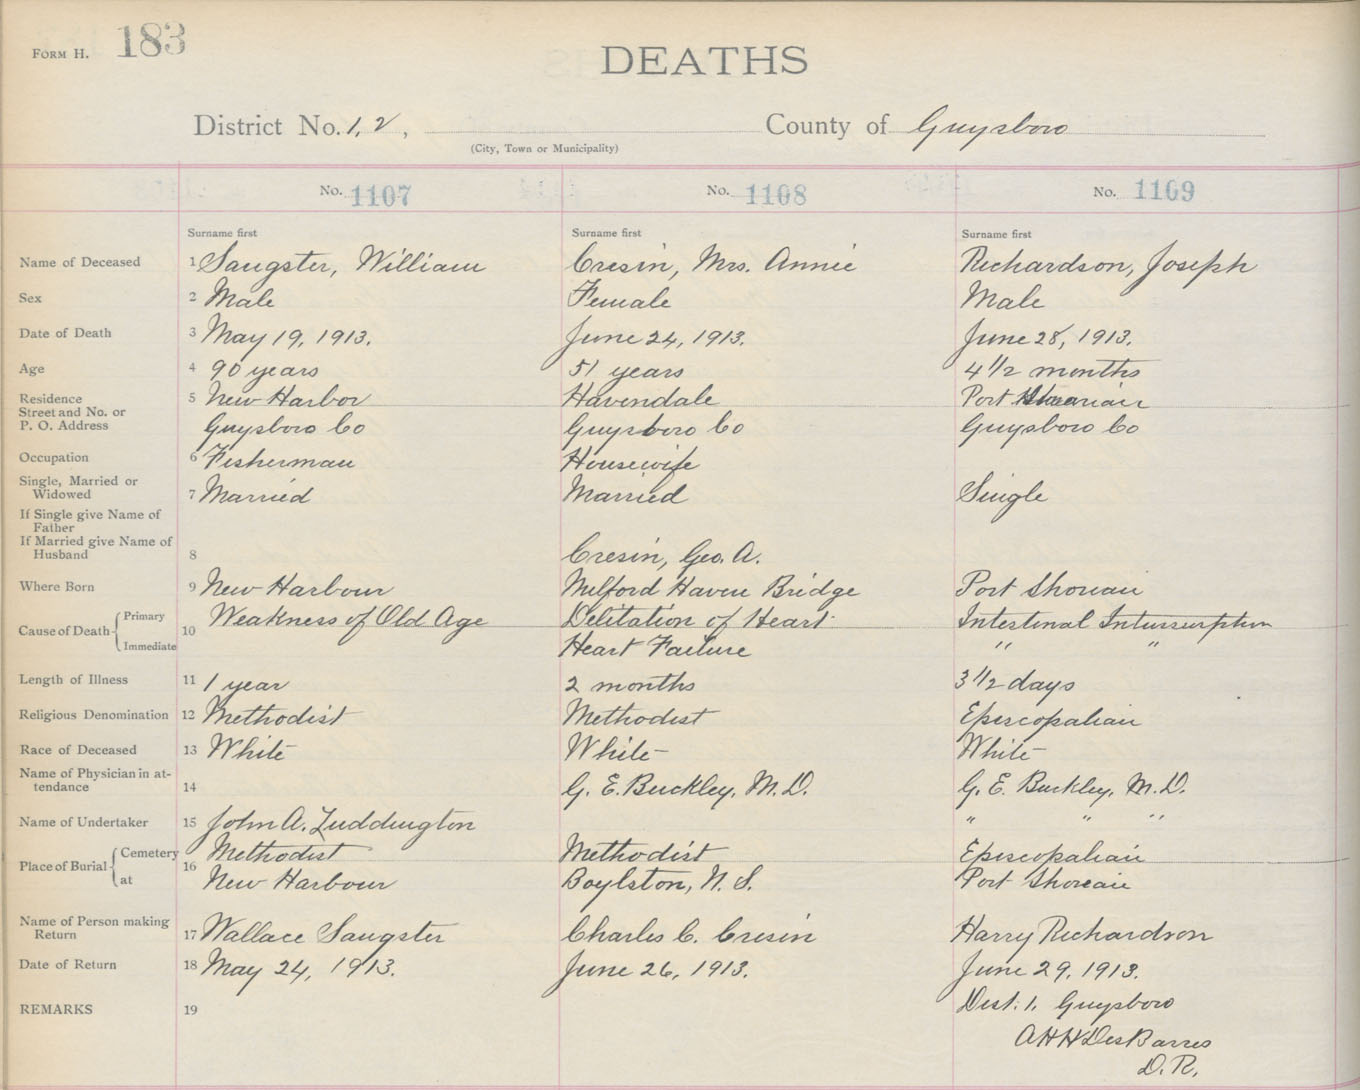 FORM H. 183
DEATHS
District No. 1, 2, County of Guysboro
(City, Town or Municipality)
No. 1107 No. 1108 No. 1109
Surname first Surname first Surname first
Name of Deceased 1 Sangster, William Cresin, Mrs. Annie Richardson, Joseph
Sex 2 Male Female Male
Date of Death 3 May 19, 1913. June 24, 1913. June 28, 1913.
Age 4 90 years 51 years 4 1/2 months
Residence 5 New Harbor Havendale Port
Street and No. or
P. O. Address Guysboro Co Guysboro Co Guysboro Co
Occupation 6 Fisherman Housewife
Single, Married or
Widowed 7 Married Married Single
If Single give Name of
Father
If Married give Name of
Husband 8 Cresin, Geo. A.
Where Born 9 New Harbour Milford Haven Bridge Port
Cause of Death Primary 10 Weakness of Old Age Delitation of Heart Intestinal
Immediate Heart Failure " "
Length of Illness 11 1 year 2 months 3 1/2 days
Religious Denomination 12 Methodist Methodist Episcopalian
Race of Deceased 13 White White White
Name of Physician in at-
tendance 14 G. E. Buckley, M.D. G. E. Buckley, M.D.
Name of Undertaker 15 John A. Luddington " " "
Place of Burial Cemetery 16 Methodist Methodist Episcopalian
at New Harbour Boylston, N. S. Port
Name of Person making
Return 17 Wallace Sangster Charles C. Cresin Harry Richardson
Date of Return 18 May 24, 1913. June 26, 1913. June 29, 1913.
REMARKS 19 Dist. 1. Guysboro
A H H DesBarres
D. R.